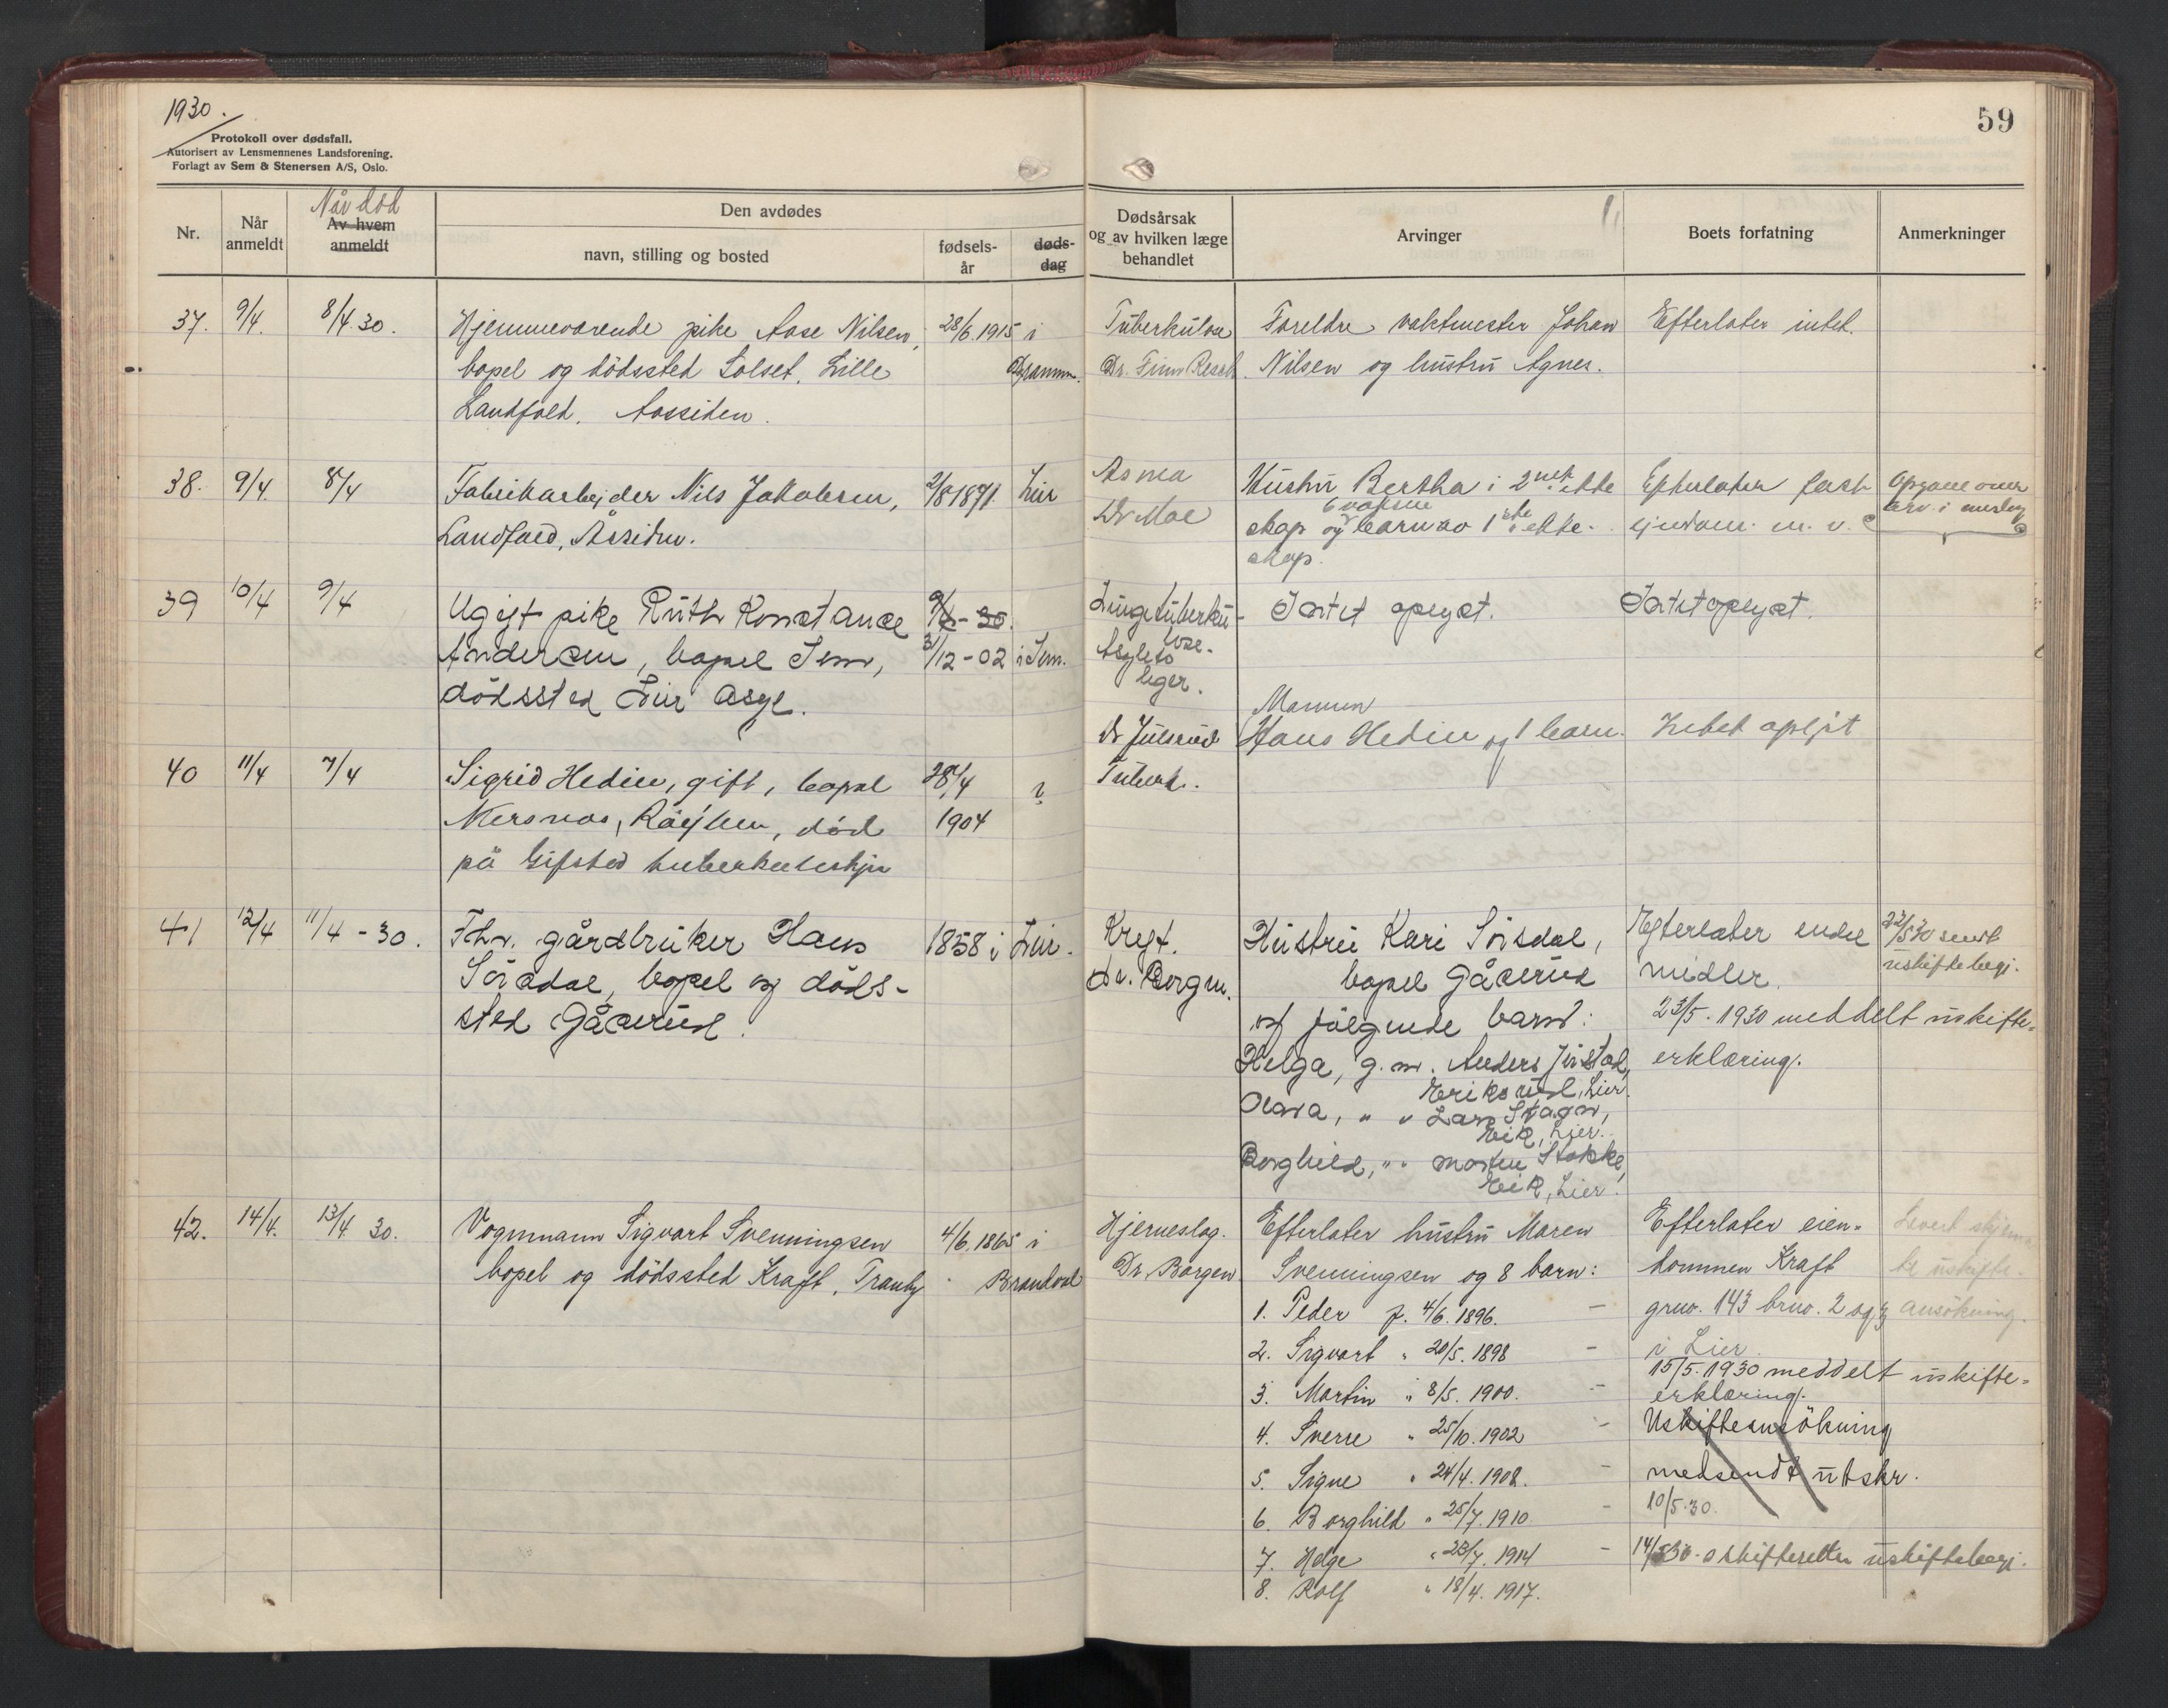 1930.
59
Protokoll over dødsfall.
Autorisert av Lensmennenes Landsforening.
Forlagt av Sem & Stenersen A/S, Oslo.
Nr.
Når anmeldt
Når död
Av hvem anmeldt
Den avdødes
navn, stilling og bosted
fødsels-år
døds-dag
Dødsårsak og av hvilken læge behandlet
Arvinger
Boets forfatning
Anmerkninger
37. 9/4. 8/4.30. Hjemmeværende pike Aase Nilsen, 28/6.1915 i Tuberkulose Foreldre vaktmester Johan Efterlater intet.
bopel og dödssted Solset, Lille Dramm. Dr. Finn Resch Nilsen og hustru Agnes.
Landfald, Aassiden.
38. 9/4 8/4 Fabrikarbejder Nils Jakobsen, 2/8 1871 Lier Asma Hustru Bertha i 2net ekte Efterlater fast Opgave over
6 voksne
Landfald, Åssiden. Dr Moe skap og barn av 1ste ekte- ejendom m. v. arv i
skap.
39 10/4 9/4 Ugift pike Ruth Konstance 9/4-30. Lungetuberku- Intet oplyst. Intet oplyst.
lose.
Andersen, bopel Sem, 31/12-02 i Sem. Asylets
dödssted Lier asyl. leger.
Mannen
Dr Julsrud Hans Hedin og 1 barn. Intet oplyst
40 11/4 7/4 Sigrid Hedin, gift, bopæl 28/4 ? Tuberk.
Nersnes, Röyken, död 1904
på Gifsted tuberkuleshjem
41 12/4 11/4-30. Fhv. gårdbruker Hans 1858 i Lier. Kreft. Hustru Kari Sörsdal, Efterlater endel 22/5 30 sendt
Sörsdal, bopel og döds- Dr. Borgen. bopel Gåserud midler. uskiftebegj.
sted Gåserud. og fölgende barn: 23/5. 1930 meddelt uskifte-
Helga, g. m. Anders Justad, erklæring.
Eriksrud, Lier.
Olava, " " Lars Stagen,
Eik, Lier.
Borghild, " " Morten Stokke,
Eik, Lier.
42. 14/4. 13/4 30. Vognmann Sigvart Svenningsen 4/6. 1865 i Hjerneslag. Efterlater hustru Maren Efterlater eien-
bopel og dödssted Kraft, Tranby Brandval Dr. Borgen Svenningsen og 8 barn: dommen Kraft
1. Peder f. 4/6. 1896. - gruo. 143 bruo. 2 og 3 ansökning.
2. Sigvart " 20/5. 1898 - i Lier.
15/5. 1930 meddelt uskifte-
3. Martin " 8/5. 1900. - erklæring.
4. Sverre " 25/10. 1902 - Uskifteansökning
5. Signe " 24/4. 1908. - medsendt utskr.
6. Borghild " 25/7. 1910 - 10/5.30.
7. Helge " 23/7. 1914 - 14/5 30. skifteretten uskiftebegj.
8. Rolf " 18/4. 1917.